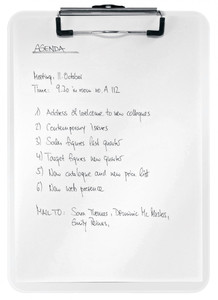 AGENDA
Meeting: 11. October
Time: 9.30 in room no. A 112
1) Address of welcome to new collegues
2) Contemporary Issues
3) Sales figures last quarter
4) Target figures new quarter
5) New catalogue and new price list
6) New web presence
MAIL TO: Sam Thomas, Dominic
Emily